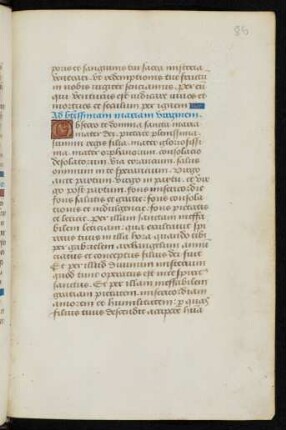 86
poris et sanguinis tui sacra misteria
venerari. ut redemptionis tue fructū
in nobis iugiter sentiamus. Per te
qui venturus est iudicare vivos et
mortuos et seculum per ignem
Ad btissimam mariam virginem.
Obsecro te domina sancta maria
mater dei. pietate plenissima.
summi regis filia. mater gloriosissi
ma. mater orphanorum. consolatio
desolatorum. via errantium. salus
omnium in te sperantium. Virgo
ante partum. virgo in partu. et vir
go post partum. fons misericordie
fons salutis et gratie. fons consola
tionis et indulgentie. fons pietatis
et leticie. per illam sanctam ineffa
bilem leticiam. qua exultavit spi
ritus tuus in illa hora. quando tibi
per gabrielem archangelum annū
ciatus et conceptus filius dei fuit
Et per illud divinum misterium
quod tunc operatus est in te spiritꝰ
sanctus. Et per illam ineffabilem
gratiam pietatem. misericordiam
amorem et humilitatem. p quas
filius tuus descendit accipere huā